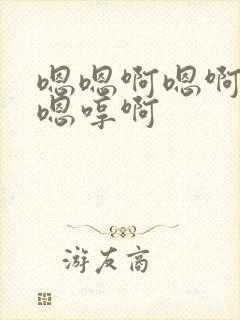 嗯嗯啊嗯啊
嗯哼啊
游友高